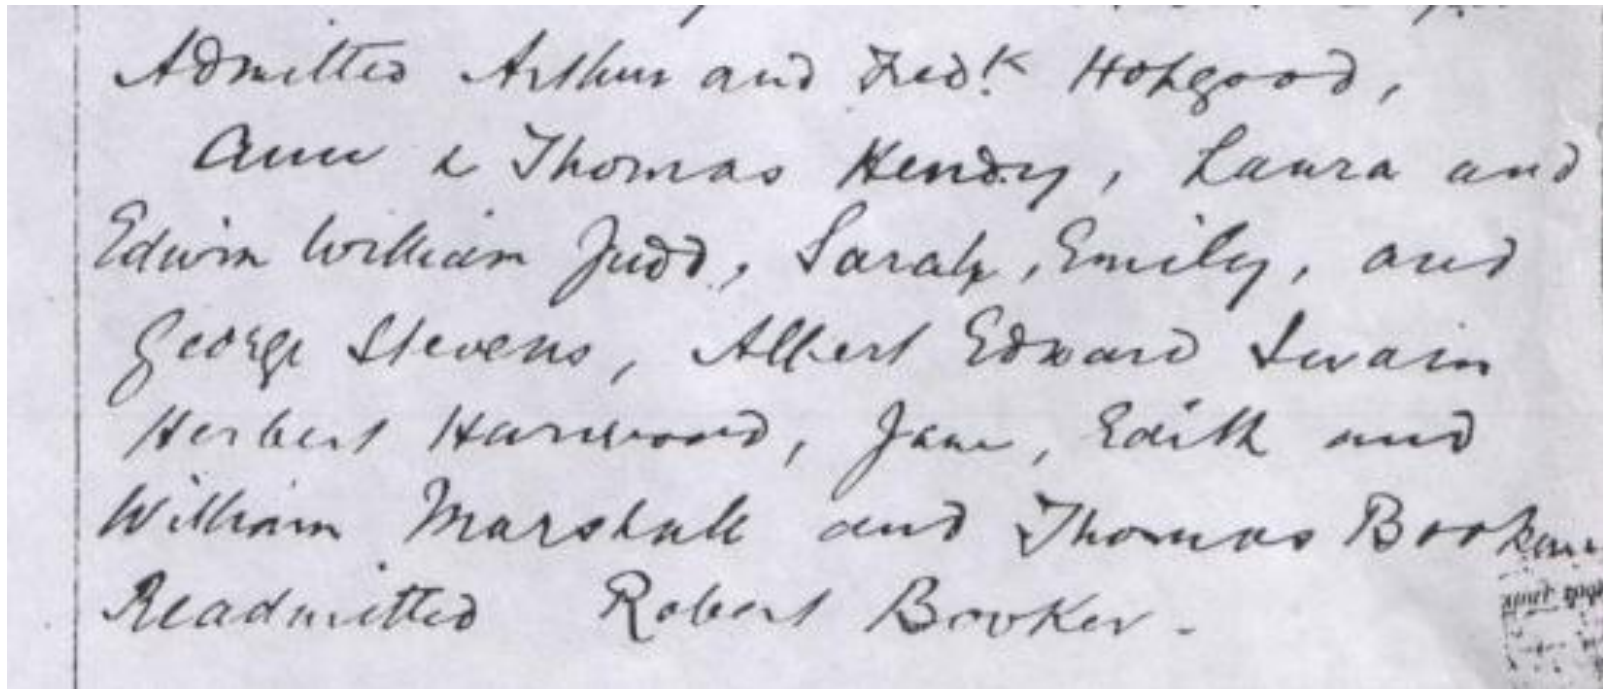 Admitted Arthur and Fredk Hopgood,
Ann & Thomas Hendy, Laura and
Edwin William Judd, Sarah, Emily, and
George Stevens, Albert Edward Swain
Herbert Harwood, Jane, Edith and
William Marshall and Thomas
Readmitted Robert Booker.